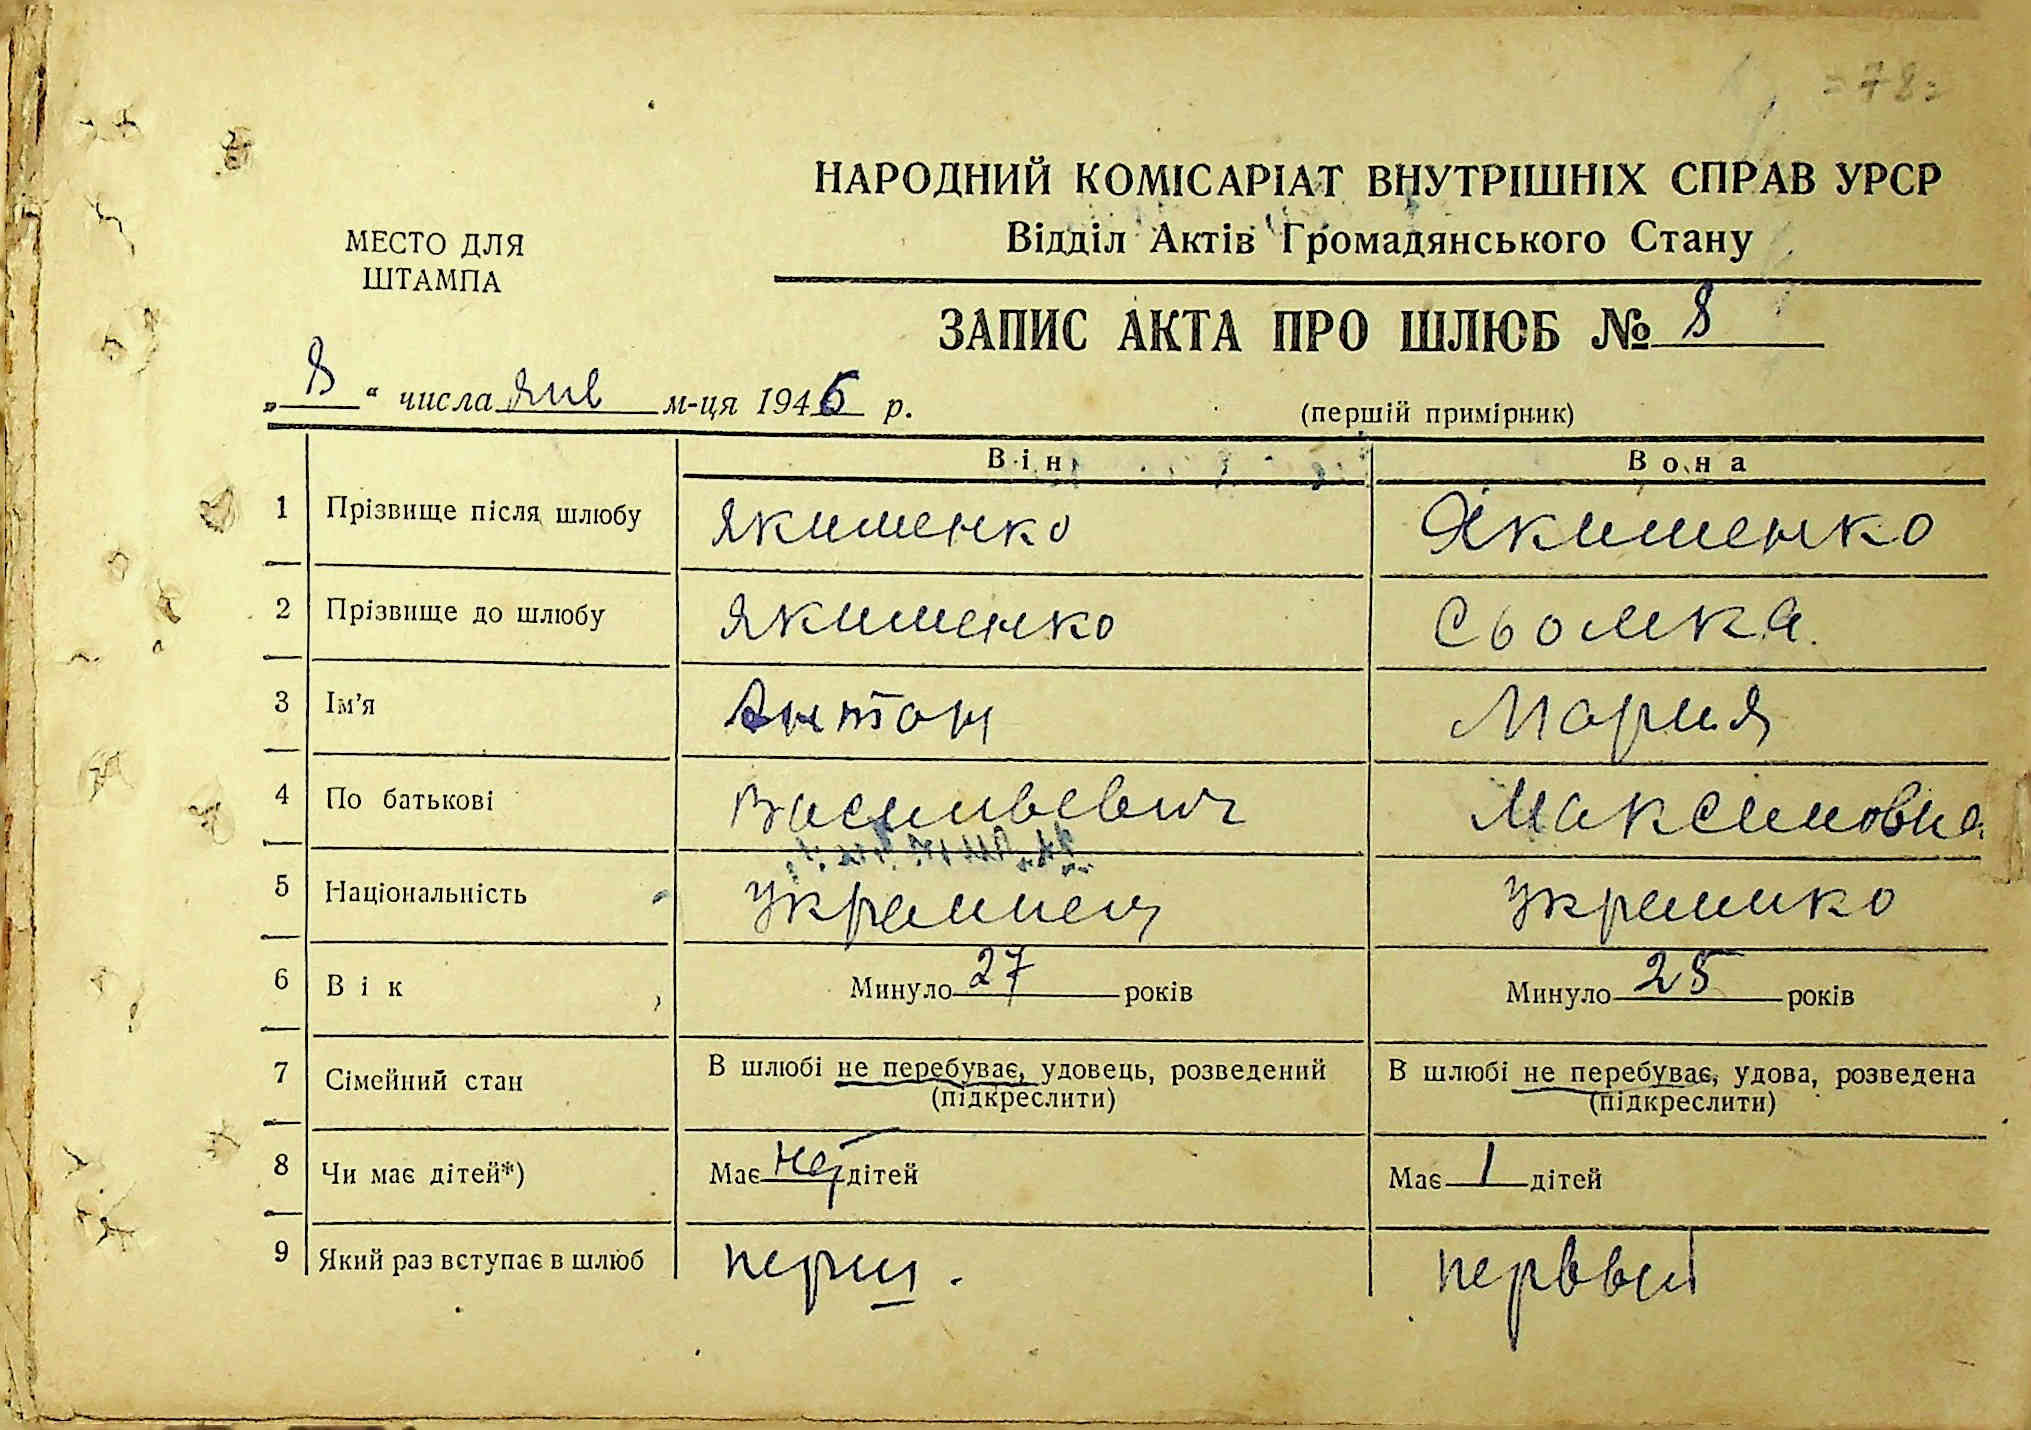 = 78 =
НАРОДНИЙ КОМІСАРІАТ ВНУТРІШНІХ СПРАВ УРСР
Відділ Актів Громадянського Стану
МЕСТО ДЛЯ
ШТАМПА
ЗАПИС АКТА ПРО ШЛЮБ № 8
„ 8 “ числа янв м-ця 1946 р.
(першій примірник)
Він Вона
1 Прізвище після шлюбу Якименко Якименко
2 Прізвище до шлюбу Якименко Сьомка
3 Ім'я Антон Мария
4 По батькові Васильевич Максимовна
5 Національність Украинец Украинко
6 Вік Минуло 27 років Минуло 25 років
7 Сімейний стан В шлюбі не перебуває, удовець, розведений В шлюбі не перебуває, удова, розведена
(підкреслити) (підкреслити)
8 Чи має дітей*) Має нет дітей Має 1 дітей
9 Який раз вступає в шлюб перш. первый